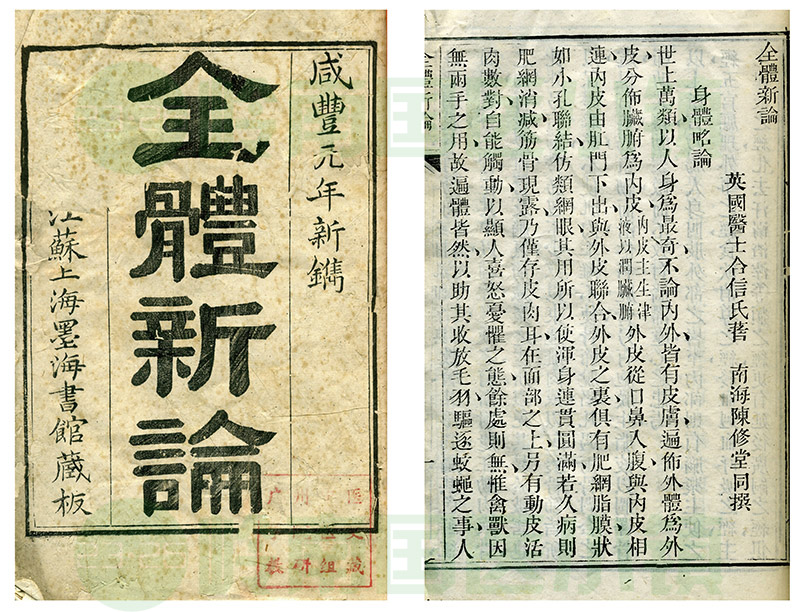 咸豐元年新鐫
全體新論
江蘇上海墨海書館藏板
全體新論
英國醫士合信氏著　南海陳修堂同撰
身體略論
世上萬類以人身爲最奇、不論內外皆有皮膚、遍佈外體爲外
皮、分佈臟腑爲內皮、內皮主生津液以潤臟腑外皮從口鼻入腹、與內皮相
連、內皮由肛門下出、與外皮聯合、外皮之裏、俱有肥網脂膜、狀
如小孔聯結、仿類網眼、其用所以使渾身連貫圓滿、若久病則
肥網消減、筋骨現露、乃僅存皮肉耳、在面部之上、另有動皮活
肉數對、自能觸動、以顯人喜怒憂懼之態、餘處則無、惟禽獸因
無兩手之用、故遍體皆然、以助其收放毛羽、驅逐蚊蠅之事、人
全體新論
一